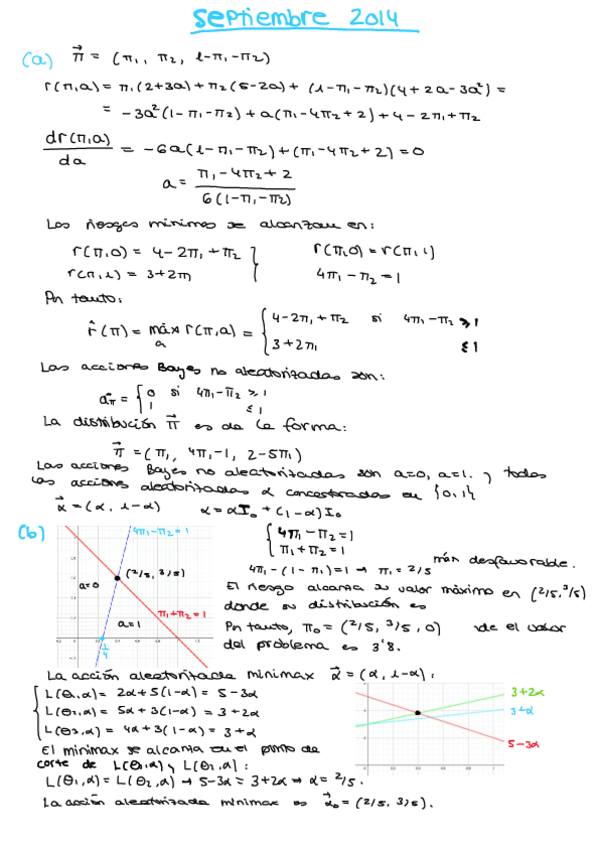 Septiembre 2014
(a) π⃗ = (π₁, π₂, 1-π₁-π₂)
r(π,a) = π₁(2+3a) + π₂(5-2a) + (1-π₁-π₂)(4+2a-3a²) =
= -3a²(1-π₁-π₂) + a(π₁-4π₂+2) + 4-2π₁+π₂
dr(π,a)/da = -6a(1-π₁-π₂) + (π₁-4π₂+2) = 0
a = (π₁-4π₂+2)/(6(1-π₁-π₂))
Los riesgos mínimos se alcanzan en:
r(π,0) = 4-2π₁+π₂ } r(π,0) = r(π,1)
r(π,1) = 3+2π₁ } 4π₁-π₂=1
Por tanto:
r̂(π) = máx r(π,a) = { 4-2π₁+π₂ si 4π₁-π₂ ≥ 1
a { 3+2π₁ ≤ 1
Las acciones Bayes no aleatorizadas son:
a_π = { 0 si 4π₁-π₂ ≥ 1
{ 1 ≤ 1
La distribución π⃗ es de la forma:
π⃗ = (π₁, 4π₁-1, 2-5π₁)
Las acciones Bayes no aleatorizadas son a=0, a=1. y todas
las acciones aleatorizadas α concentradas en {0,1}
α⃗ = (α, 1-α) α = αI₀ + (1-α)I₀
(b) 4π₁-π₂=1
{ 4π₁-π₂=1
{ π₁+π₂=1
4π₁-(1-π₁)=1 → π₁=2/5
más desfavorable.
(2/5, 3/5)
a=0
a=1
π₁+π₂=1
1/4
El riesgo alcanza su valor máximo en (2/5, 3/5)
donde su distribución es
Por tanto, π₀ = (2/5, 3/5, 0) y el valor
del problema es 3'8.
La acción aleatorizada minimax α⃗ = (α, 1-α):
{ L(θ₁,α) = 2α+5(1-α) = 5-3α
L(θ₂,α) = 5α+3(1-α) = 3+2α
L(θ₃,α) = 4α+3(1-α) = 3+α
3+2α
3+α
5-3α
El minimax se alcanza en el punto de
corte de L(θ₁,α) y L(θ₂,α):
L(θ₁,α) = L(θ₂,α) → 5-3α = 3+2α → α = 2/5.
La acción aleatorizada minimax es α⃗₀ = (2/5, 3/5).